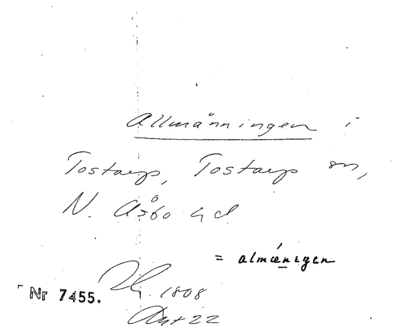 Allmänningen i
Tostarp, Tostarp sn,
N. Åsbo hd
= almæ̇nıgen
Nr 7455. 1808
Akt 22